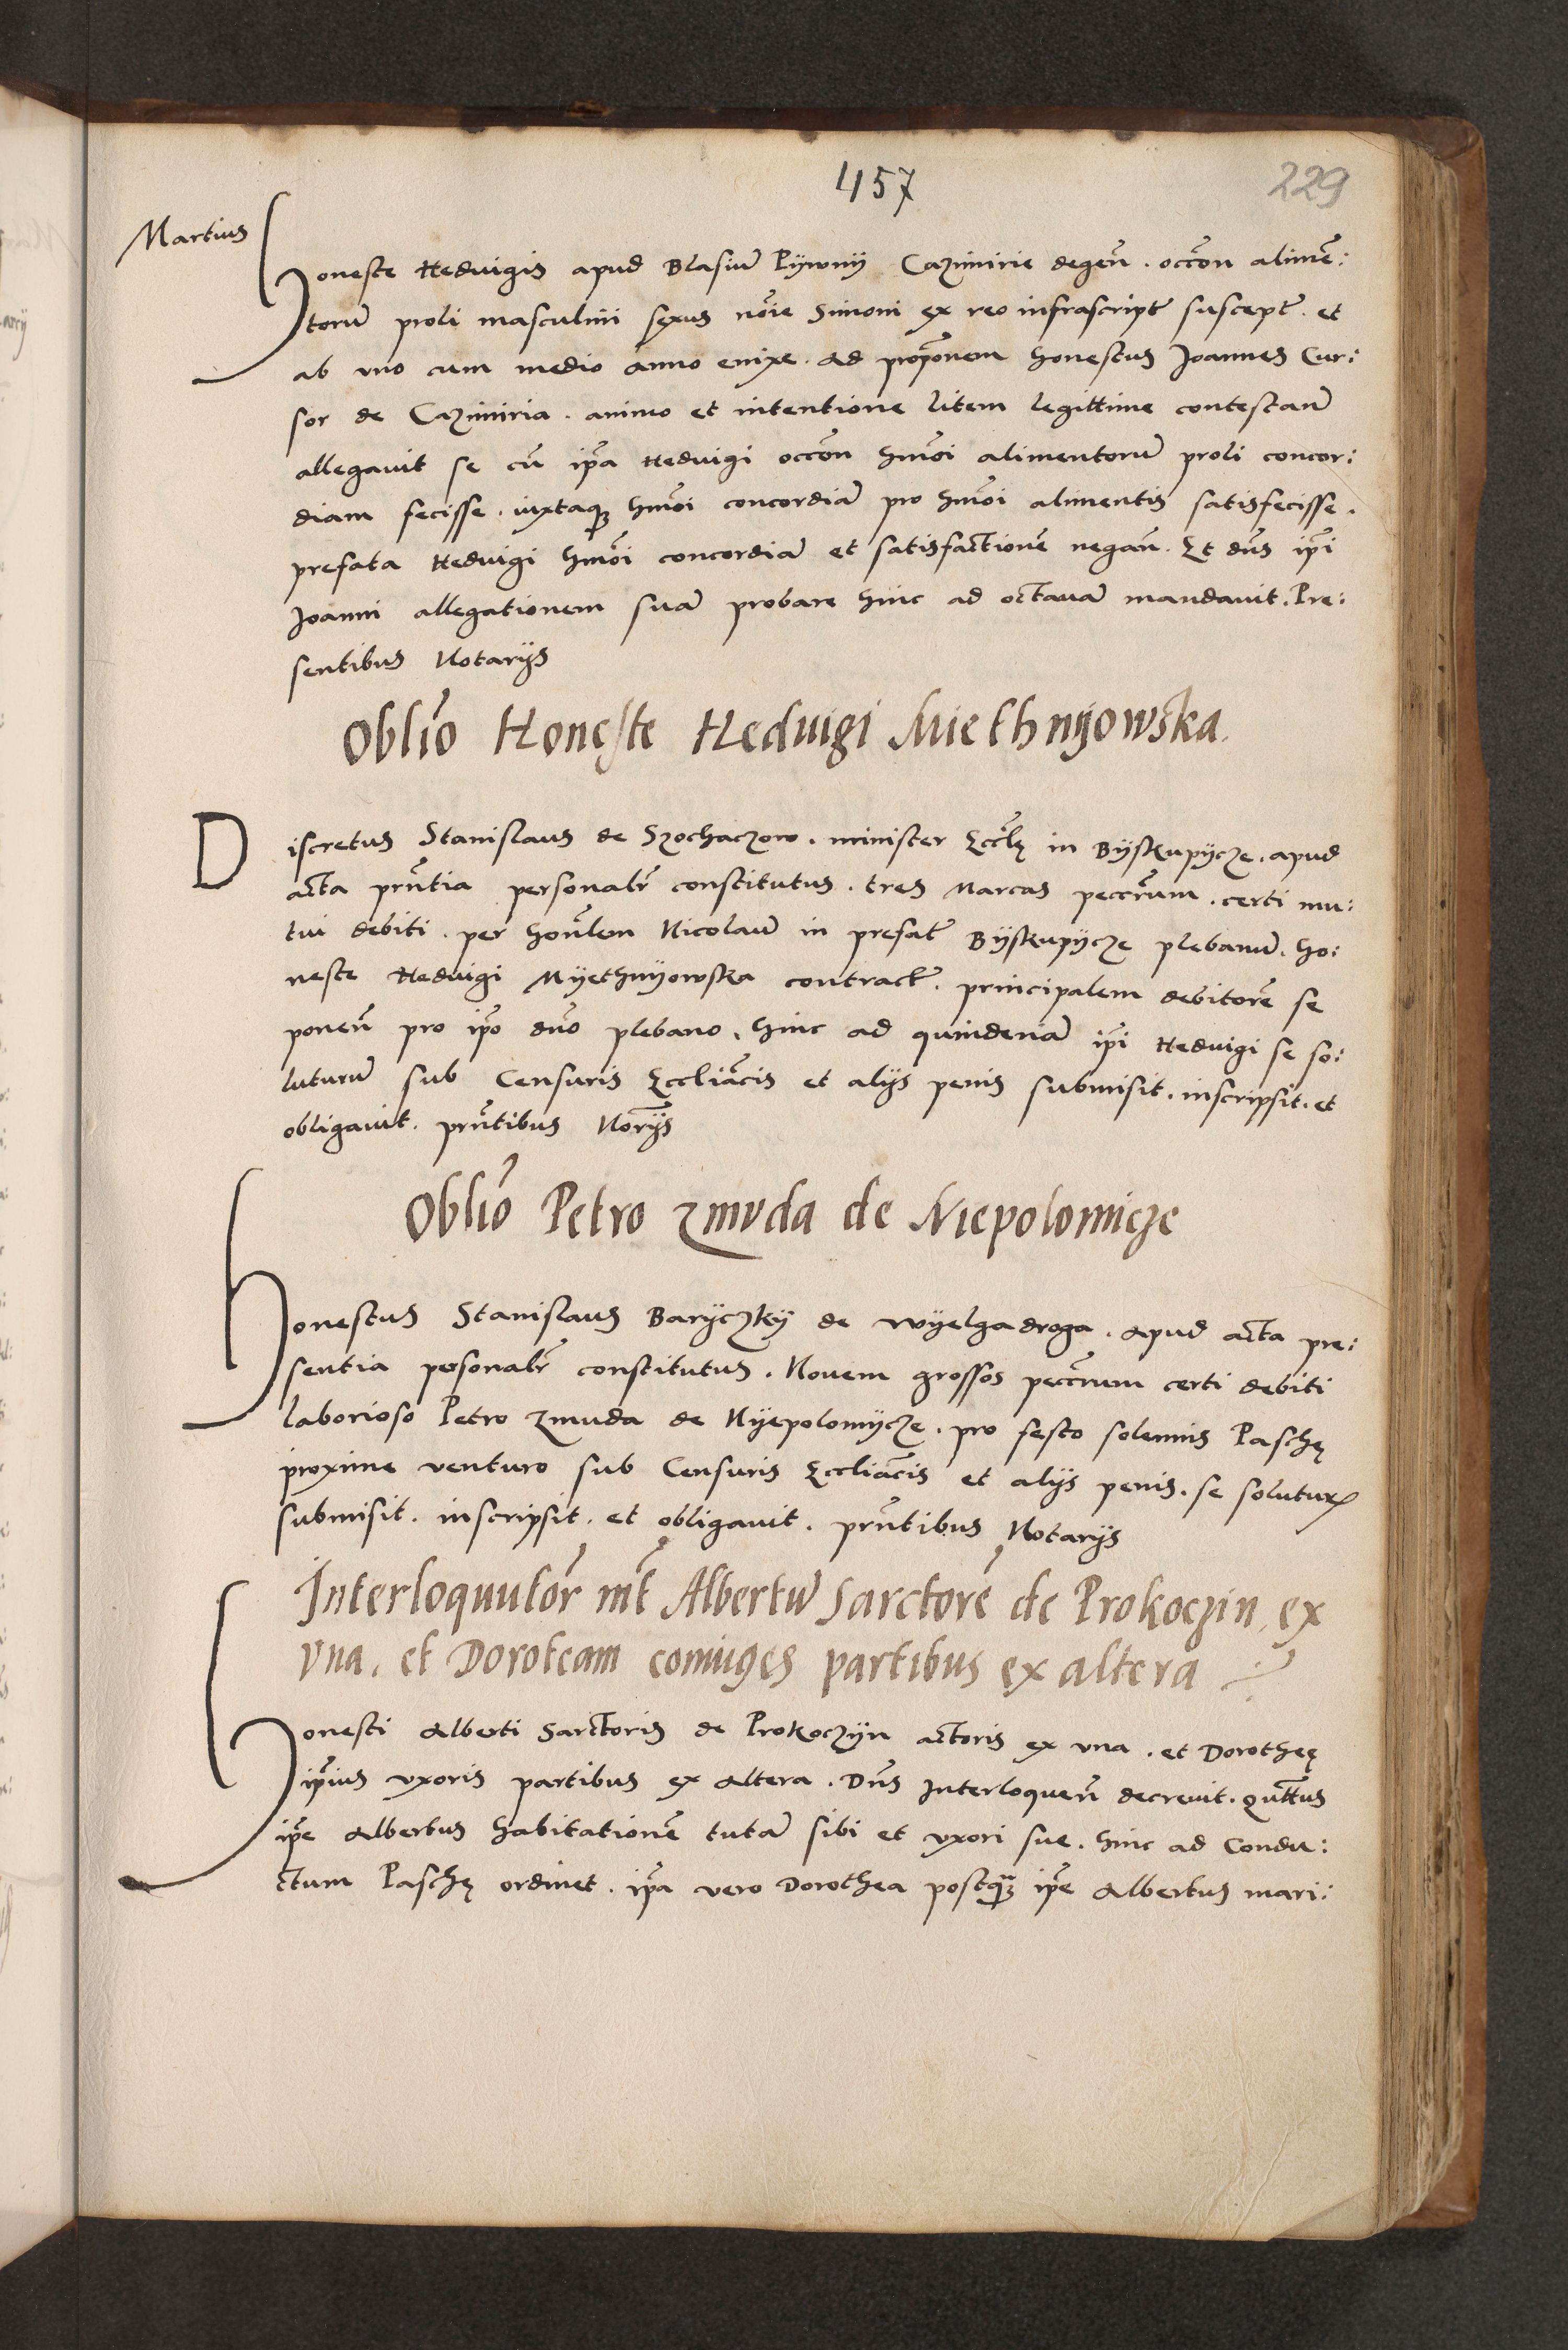 457
229
Martius
Honeste Hedvigis apud Blasiū Pywny Cazimirie degeñ. occōn alimē:
torū proli masculini sexus nōie Simoni ex reo infrascript̃ suscept̃. et
ab vno cum medio anno enixe. ad propōnem honestus Joannes Cur:
sor de Cazimiria. animo et intentione litem legittime contestañ
allegavit se cū ip̃a Hedvigi occōn hmōi alimentorū proli concor:
diam fecisse. iuxtaq; hmōi concordiā pro hmōi alimentis satisfecisse.
prefata Hedvigi hmōi concordiā et satisfactionē negañ. Et dñs ip̃i
Joanni allegationem suā probare hinc ad octavā mandavit. Pre:
sentibus Notarijs
Oblīo Honeste Hedvigi Miethnyowska.
Discretus Stanislaus de Szochaczow. minister Eccl̃ę in Byskupycze. apud
acta prñtia personalr̃ constitutus. tres Marcas peccr̃um. certi mu:
tui debiti. per honl̃em Nicolaū in prefat̃ Byskupycze plebanū. ho:
neste Hedvigi Myethnyowska contract̃. principalem debitorē se
poneñ pro ip̃o dño plebano. hinc ad quindenā ip̃i Hedvigi se so:
luturū sub Censuris Eccliācis et alijs penis submisit. inscripsit. et
obligavit. prñtibus Nor̃ijs
Oblīo Petro zmuda de Niepolomicze
Honestus Stanislaus Baryczky de Wyelgadroga. apud acta pre:
sentia personalr̃ constitutus. Novem grossos peccr̃num certi debiti
laborioso Petro zmuda de Nyepolomycze. pro festo solennis Paschę
proxime venturo sub Censuris Eccliācis et alijs penis. se solutur̃
submisit. inscripsit. et obligavit. prñtibus Notarijs
Interloquutōr int̃ Albertū Sarctorē de Prokoczin, ex
vna. et Doroteam coniuges partibus ex altera
Honesti Alberti Sarctoris de Prokoczyn actoris ex vna. et Dorotheę
ip̃ius vxoris partibus ex altera. Dñs Interloqueñ decrevit. quãtus
ip̃e Albertus habitationē tutā sibi et vxori sue. hinc ad Condu:
ctum Paschę ordinet. ip̃a vero Dorothea postq̃; ip̃e Albertus mari: